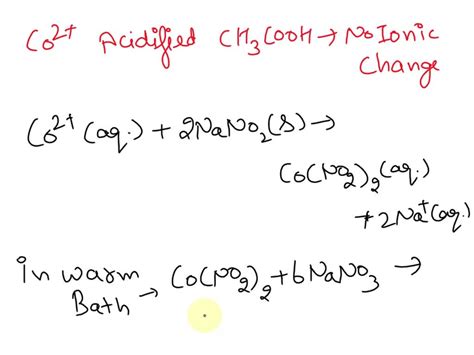 Co²⁺ Acidified CH₃COOH → No Ionic
Change
Co²⁺(aq.) + 2NaNO₂(s) →
Co(NO₂)₂(aq.)
+ 2Na⁺(aq.)
in warm
Bath → Co(NO₂)₂ + 6NaNO₃ →